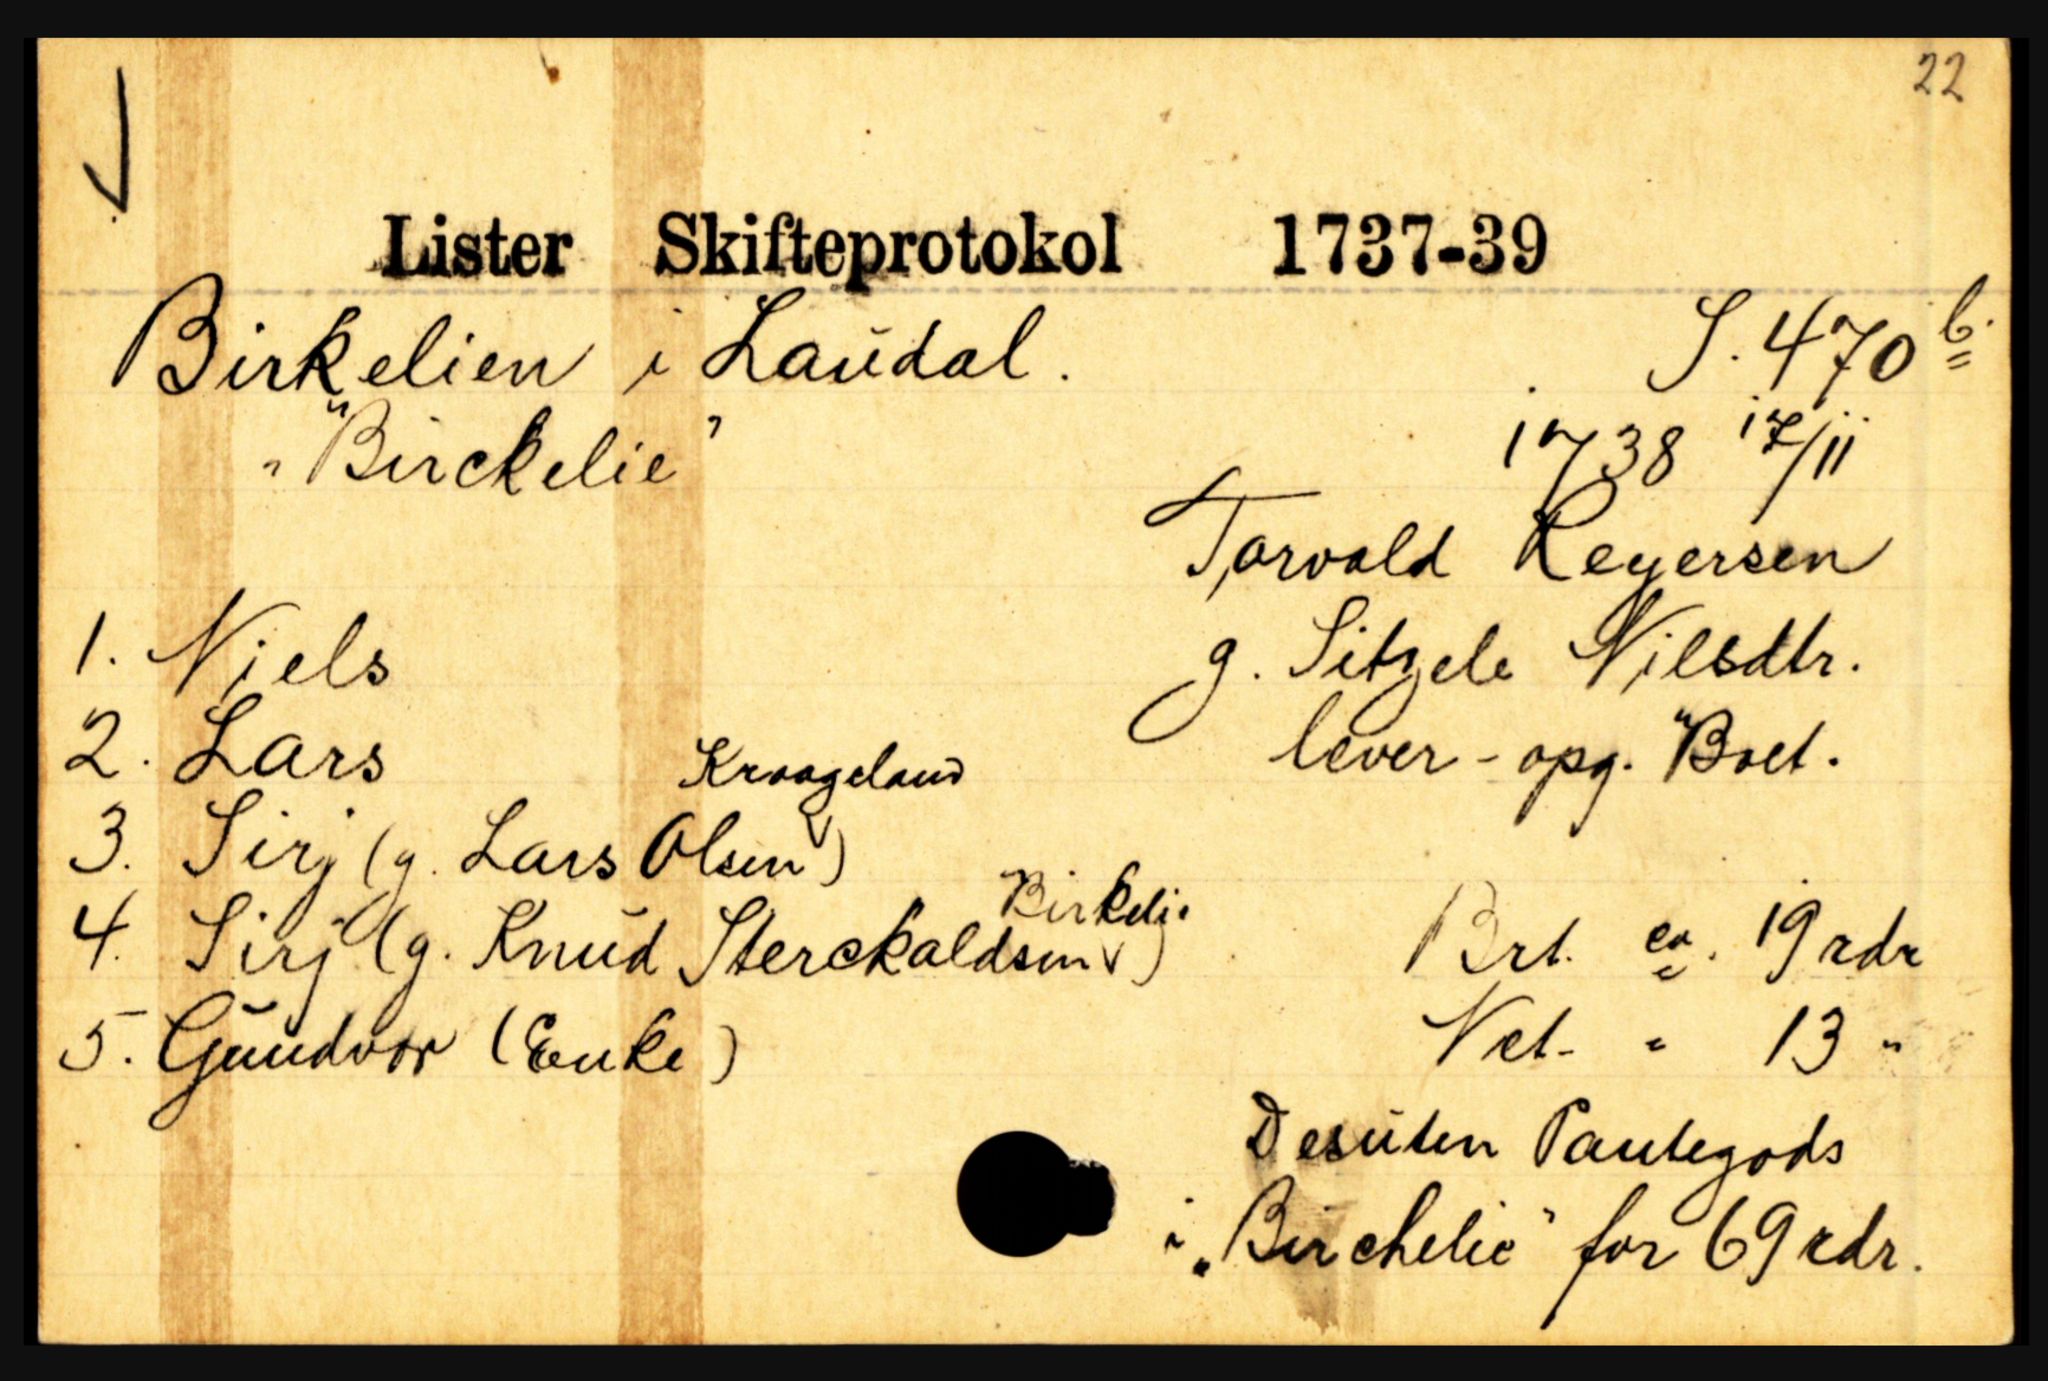 22
Lister Skifteprotokol 1737-39
Birkelien i Laudal. S. 470 b.
"Birckelie" 1738 17/11
Torvald Reyersen
1. Niels g. Sitzele Nilsdtr.
2. Lars lever - opg. Boet.
Kraageland
3. Sirj (g. Lars Olsen)
Birkelie
4. Sirj (g. Knud Sterckaldsen) Brt. ca. 19 rdr
5. Gundvor (Enke) Net - " 13 "
Desuten Pantegods
i "Birchelie" for 69 rdr.